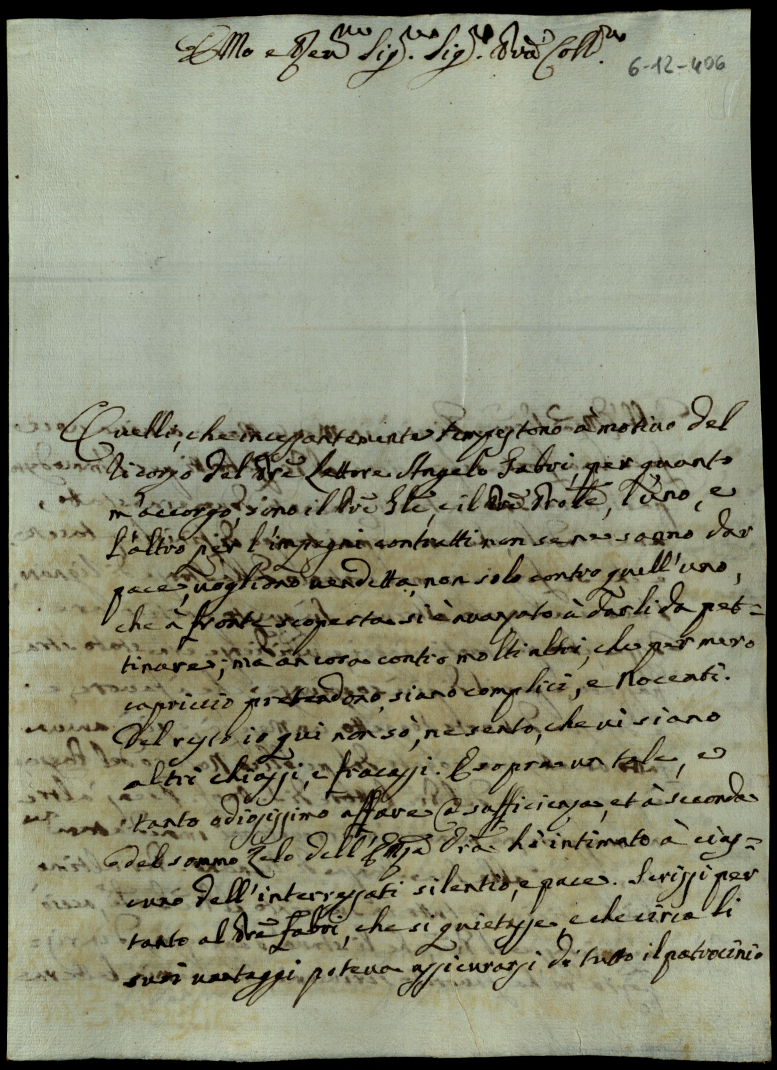 Em̃o e Rev.mo Sig.re Sig.re Prõn Coll.mo
6-12-406
Quelli, che incessantemente tempestono à motivo del
ricorso del Prẽ Lettore Angelo Fabri, per quanto
m'accorgo, sono il Prẽ e il Prẽ l'uno, e
l'altro per l'impegni contratti non se ne sanno dar
pace, vogliono vendetta, non solo contro quell'uno,
che à fronte scoperta si è avanzato à darli da pet=
tinare; mà ancora contro molti altri, che per mero
capriccio pretendono, siano complici, e Nocenti.
Del resto io qui non sò, ne sento, che vi siano
altri chiassi, e fracassi. E sopra un tale, e
tanto odiosissimo affare a sufficienza, et à seconda
del sommo Zelo dell'Em̃za Vrã hò intimato à cias=
cuno dell'interessati silentio, e pace. Scrissi per
tanto al Prẽ Fabri, che si quietasse, e che circa li
suoi vantaggi poteva assicurarsi di tutto il patrocinio